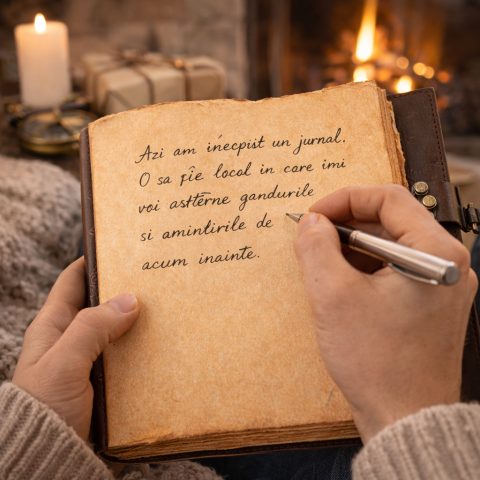 Azi am inecpist un jurnal.
O sa fie local in care imi
voi astterne gandurile
si amintirile de
acum inainte.